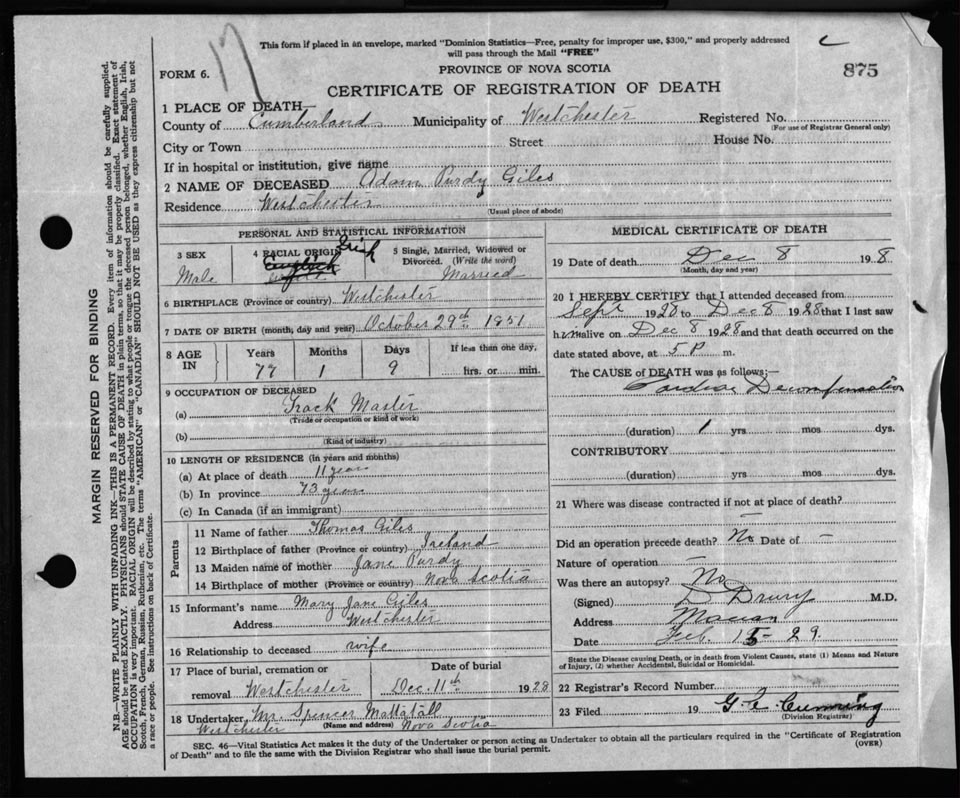 17
This form if placed in an envelope, marked "Dominion Statistics—Free, penalty for improper use, $300," and properly addressed
will pass through the Mail "FREE"
c
875
FORM 6.
PROVINCE OF NOVA SCOTIA
CERTIFICATE OF REGISTRATION OF DEATH
MARGIN RESERVED FOR BINDING
N.B.—WRITE PLAINLY WITH UNFADING INK—THIS IS A PERMANENT RECORD. Every item of information should be carefully supplied.
AGE should be stated EXACTLY. PHYSICIANS should STATE CAUSE OF DEATH in plain terms, so that it may be properly classified. Exact statement of
OCCUPATION is very important. RACIAL ORIGIN will be described by stating to what people or tongue the deceased person belonged, whether English, Irish,
Scotch, French, German, Russian, Ruthenian, etc. The terms "AMERICAN" or "CANADIAN" SHOULD NOT BE USED as they express citizenship but not
a race or people. See instructions on back of Certificate.
1 PLACE OF DEATH—
County of Cumberland Municipality of Westchester Registered No.
(For use of Registrar General only)
City or Town Street House No.
If in hospital or institution, give name
2 NAME OF DECEASED Adam Purdy Giles
Residence Westchester
(Usual place of abode)
PERSONAL AND STATISTICAL INFORMATION
3 SEX
Male
4 RACIAL ORIGIN
Irish
English
5 Single, Married, Widowed or
Divorced. (Write the word)
Married
6 BIRTHPLACE (Province or country) Westchester
7 DATE OF BIRTH (month, day and year) October 29th 1851
8 AGE IN
Years Months Days If less than one day,
77 1 9 hrs. or min.
9 OCCUPATION OF DECEASED
(a) Track Master
(Trade or occupation or kind of work)
(b)
(Kind of industry)
10 LENGTH OF RESIDENCE (in years and months)
(a) At place of death 11 years
(b) In province 73 years
(c) In Canada (if an immigrant)
Parents
11 Name of father Thomas Giles
12 Birthplace of father (Province or country) Ireland
13 Maiden name of mother Jane Purdy
14 Birthplace of mother (Province or country) Nova Scotia
15 Informant's name Mary Jane Giles
Address Westchester
16 Relationship to deceased wife
17 Place of burial, cremation or
removal Westchester
Date of burial
Dec. 11th 1928
18 Undertaker Mr. Spencer Mattatall
(Name and address)
Westchester Nova Scotia
MEDICAL CERTIFICATE OF DEATH
19 Date of death Dec 8 1928
(Month, day and year)
20 I HEREBY CERTIFY that I attended deceased from
Sept 1928 to Dec 8 1928 that I last saw
h alive on Dec 8 1928 and that death occurred on
date stated above, at 5 P m.
The CAUSE of DEATH was as follows:—
Cardiac Decompensation
(duration) 1 yrs mos dys.
CONTRIBUTORY
(duration) yrs mos dys.
21 Where was disease contracted if not at place of death?
—
Did an operation precede death? No Date of —
Nature of operation —
Was there an autopsy? No
(Signed) D Drury M.D.
Address Maccan
Date Feb. 15 - 29.
State the Disease causing Death, or in death from Violent Causes, state (1) Means and Nature
of Injury, (2) whether Accidental, Suicidal or Homicidal.
22 Registrar's Record Number
23 Filed 19 Cumming
(Division Registrar)
SEC. 46—Vital Statistics Act makes it the duty of the Undertaker or person acting as Undertaker to obtain all the particulars required in the "Certificate of Registration
of Death" and to file the same with the Division Registrar who shall issue the burial permit.
(OVER)